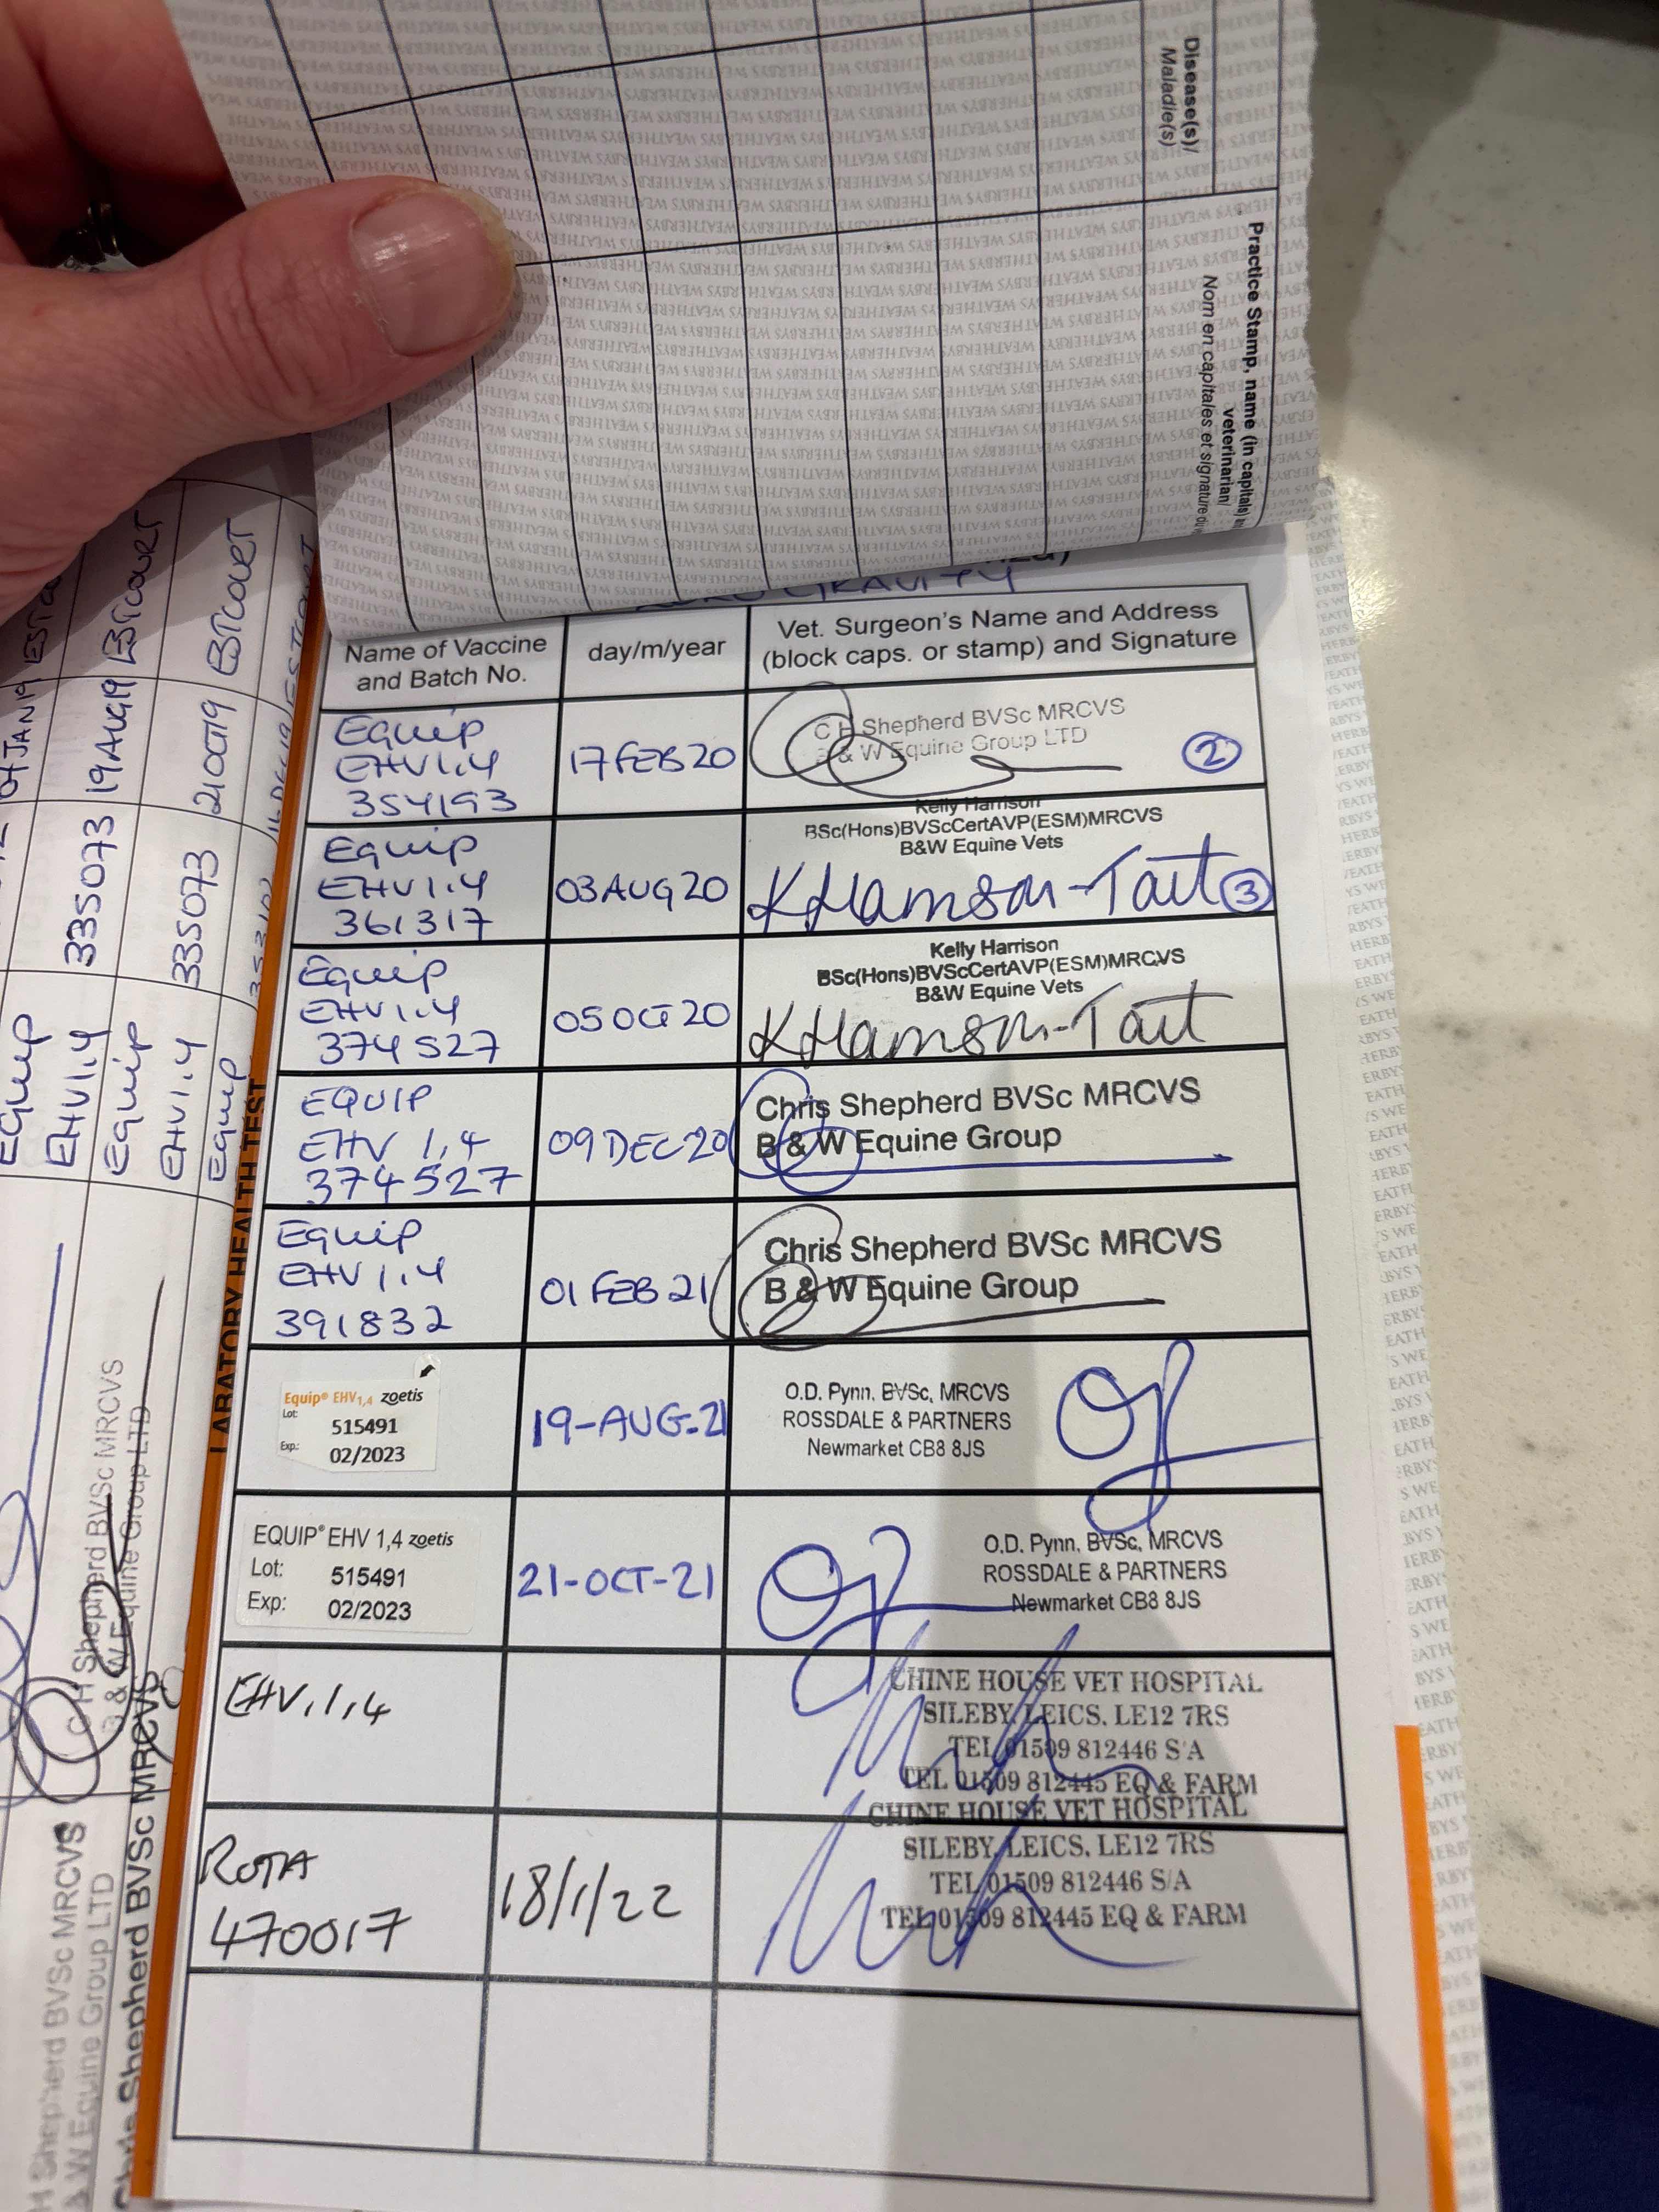 Disease(s)/
Maladie(s)
Practice Stamp, name (in capitals)
veterinarian/
Nom en capitales et signature du
WEATHERBYS WEATHERBYS WEATHERBYS
GRAVITY
Name of Vaccine
and Batch No.
day/m/year
Vet. Surgeon's Name and Address
(block caps. or stamp) and Signature
Equip
EHV1.4
354193
17 FEB 20
C H Shepherd BVSc MRCVS
B & W Equine Group LTD
2
Equip
EHV1.4
361317
03 AUG 20
Kelly Harrison
BSc(Hons)BVScCertAVP(ESM)MRCVS
B&W Equine Vets
KHarrison-Tait
3
Equip
EHV1.4
374527
05 OCT 20
Kelly Harrison
BSc(Hons)BVScCertAVP(ESM)MRCVS
B&W Equine Vets
KHarrison-Tait
EQUIP
EHV 1,4
374527
09 DEC 20
Chris Shepherd BVSc MRCVS
B & W Equine Group
Equip
EHV 1.4
391832
01 FEB 21
Chris Shepherd BVSc MRCVS
B & W Equine Group
Equip® EHV1,4 zoetis
Lot:
515491
Exp:
02/2023
19-AUG-21
O.D. Pynn, BVSc, MRCVS
ROSSDALE & PARTNERS
Newmarket CB8 8JS
EQUIP® EHV 1,4 zoetis
Lot: 515491
Exp: 02/2023
21-OCT-21
O.D. Pynn, BVSc, MRCVS
ROSSDALE & PARTNERS
Newmarket CB8 8JS
EHV.1,4
CHINE HOUSE VET HOSPITAL
SILEBY, LEICS, LE12 7RS
TEL 01509 812446 S/A
TEL 01509 812445 EQ & FARM
ROTA
470017
18/1/22
CHINE HOUSE VET HOSPITAL
SILEBY, LEICS, LE12 7RS
TEL 01509 812446 S/A
TEL 01509 812445 EQ & FARM
LABARATORY HEALTH TEST
Equip
EHV1.4
335073
19 AUG 19
ESTCOURT
Equip
EHV1.4
335073
21 OCT 19
ESTCOURT
Equip
C H Shepherd BVSc MRCVS
B & W Equine Group LTD
H Shepherd BVSc MRCVS
& W Equine Group LTD
Chris Shepherd BVSc MRCVS